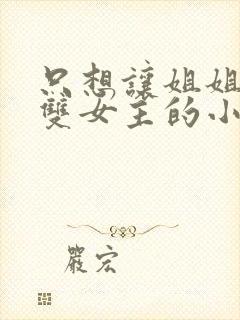 只想讓姐姐
雙女主的小
嚴宏